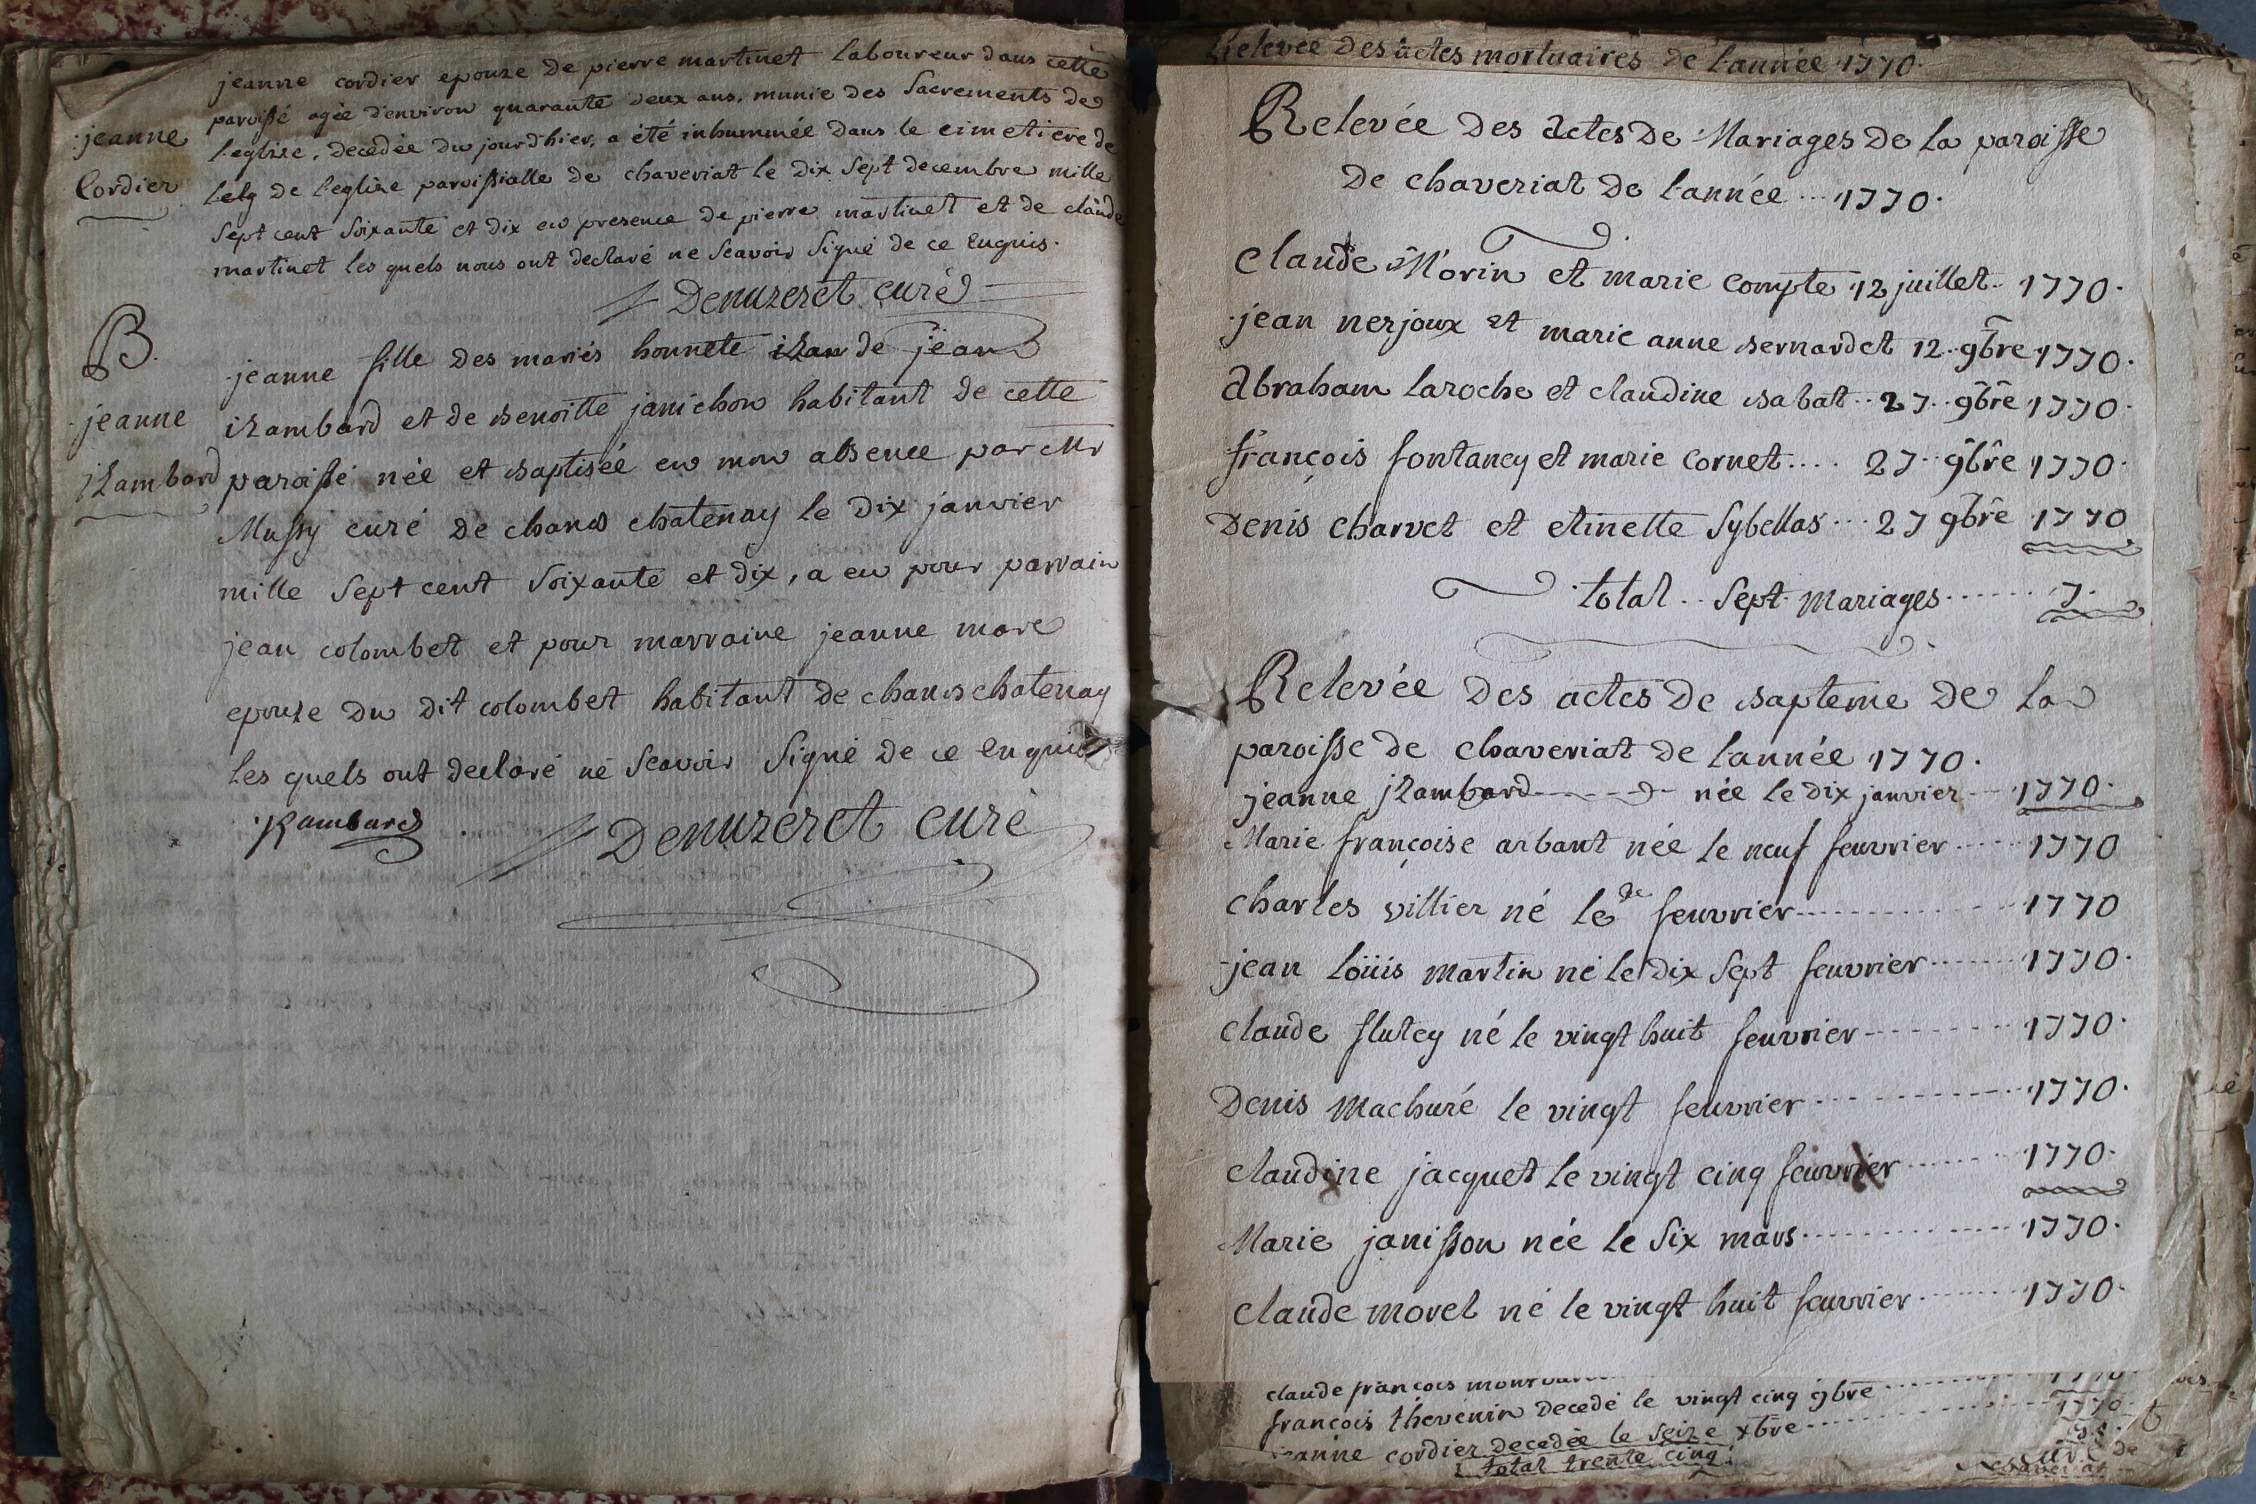 jeanne cordier epouze de pierre martinet laboureur dans cette
paroissé agée d'environ quarante deux ans, munie des Sacrements de
l'eglize, decedée du jourd'hier, a été inhummée dans le cimetiere de
jeanne
Cordier
de l'eglize paroissialle de chaveriat le dix Sept decembre mille
Sept cent Soixante et dix en presence de pierre martinet et de claude
martinet les quels nous ont declaré ne Scavoir Signé de ce Enquis.
Denuzeret curé
B.
jeanne
jzambard
jeanne fille des mariés honnete izam de jean
izambard et de benoitte janichon habitant de cette
paroissé née et baptisée en mon absence par Mr
Mussy curé de chanos chatenay le dix janvier
mille Sept cent Soixante et dix, a eu pour parrain
jean colombet et pour marraine jeanne more
epouze du dit colombet habitant de chanos chatenay
les quels ont declaré né Scavoir Signé de ce enquis
Denuzeret curé
Relevée des actes mortuaires de l'année 1770.
Relevée des actes de Mariages de la paroisse
de chaveriat de l'année ... 1770.
Claude Morin et marie compte 12 juillet. 1770.
jean nerjoux et marie anne bernardet 12. 9bre 1770.
abraham laroche et claudine sabat .. 27.. 9bre 1770.
françois fontaney et marie cornet .... 27.. 9bre 1770.
Denis charvet et etinette Sybellas ... 27 9bre 1770
total .. Sept Mariages ...... 7.
Relevée des actes de bapteme de la
paroisse de chaveriat de l'année 1770.
jeanne jzambard née le dix janvier ... 1770.
Marie françoise arbant née le neuf feuvrier ..... 1770
charles villier né le de feuvrier ........ 1770
jean loüis martin né le dix Sept feuvrier ...... 1770.
claude flutey né le vingt huit feuvrier ........ 1770.
Denis machuré le vingt feuvrier ........ 1770.
claudine jacquet le vingt cinq feuvrier ...... 1770.
Marie janisson née le Six mars ........ 1770.
claude morel né le vingt huit feuvrier ...... 1770.
claude francois
francois thevenin decedé le vingt cinq 9bre ...... 1770.
jeanne cordier decedée le seize xbre
total trente cinq.